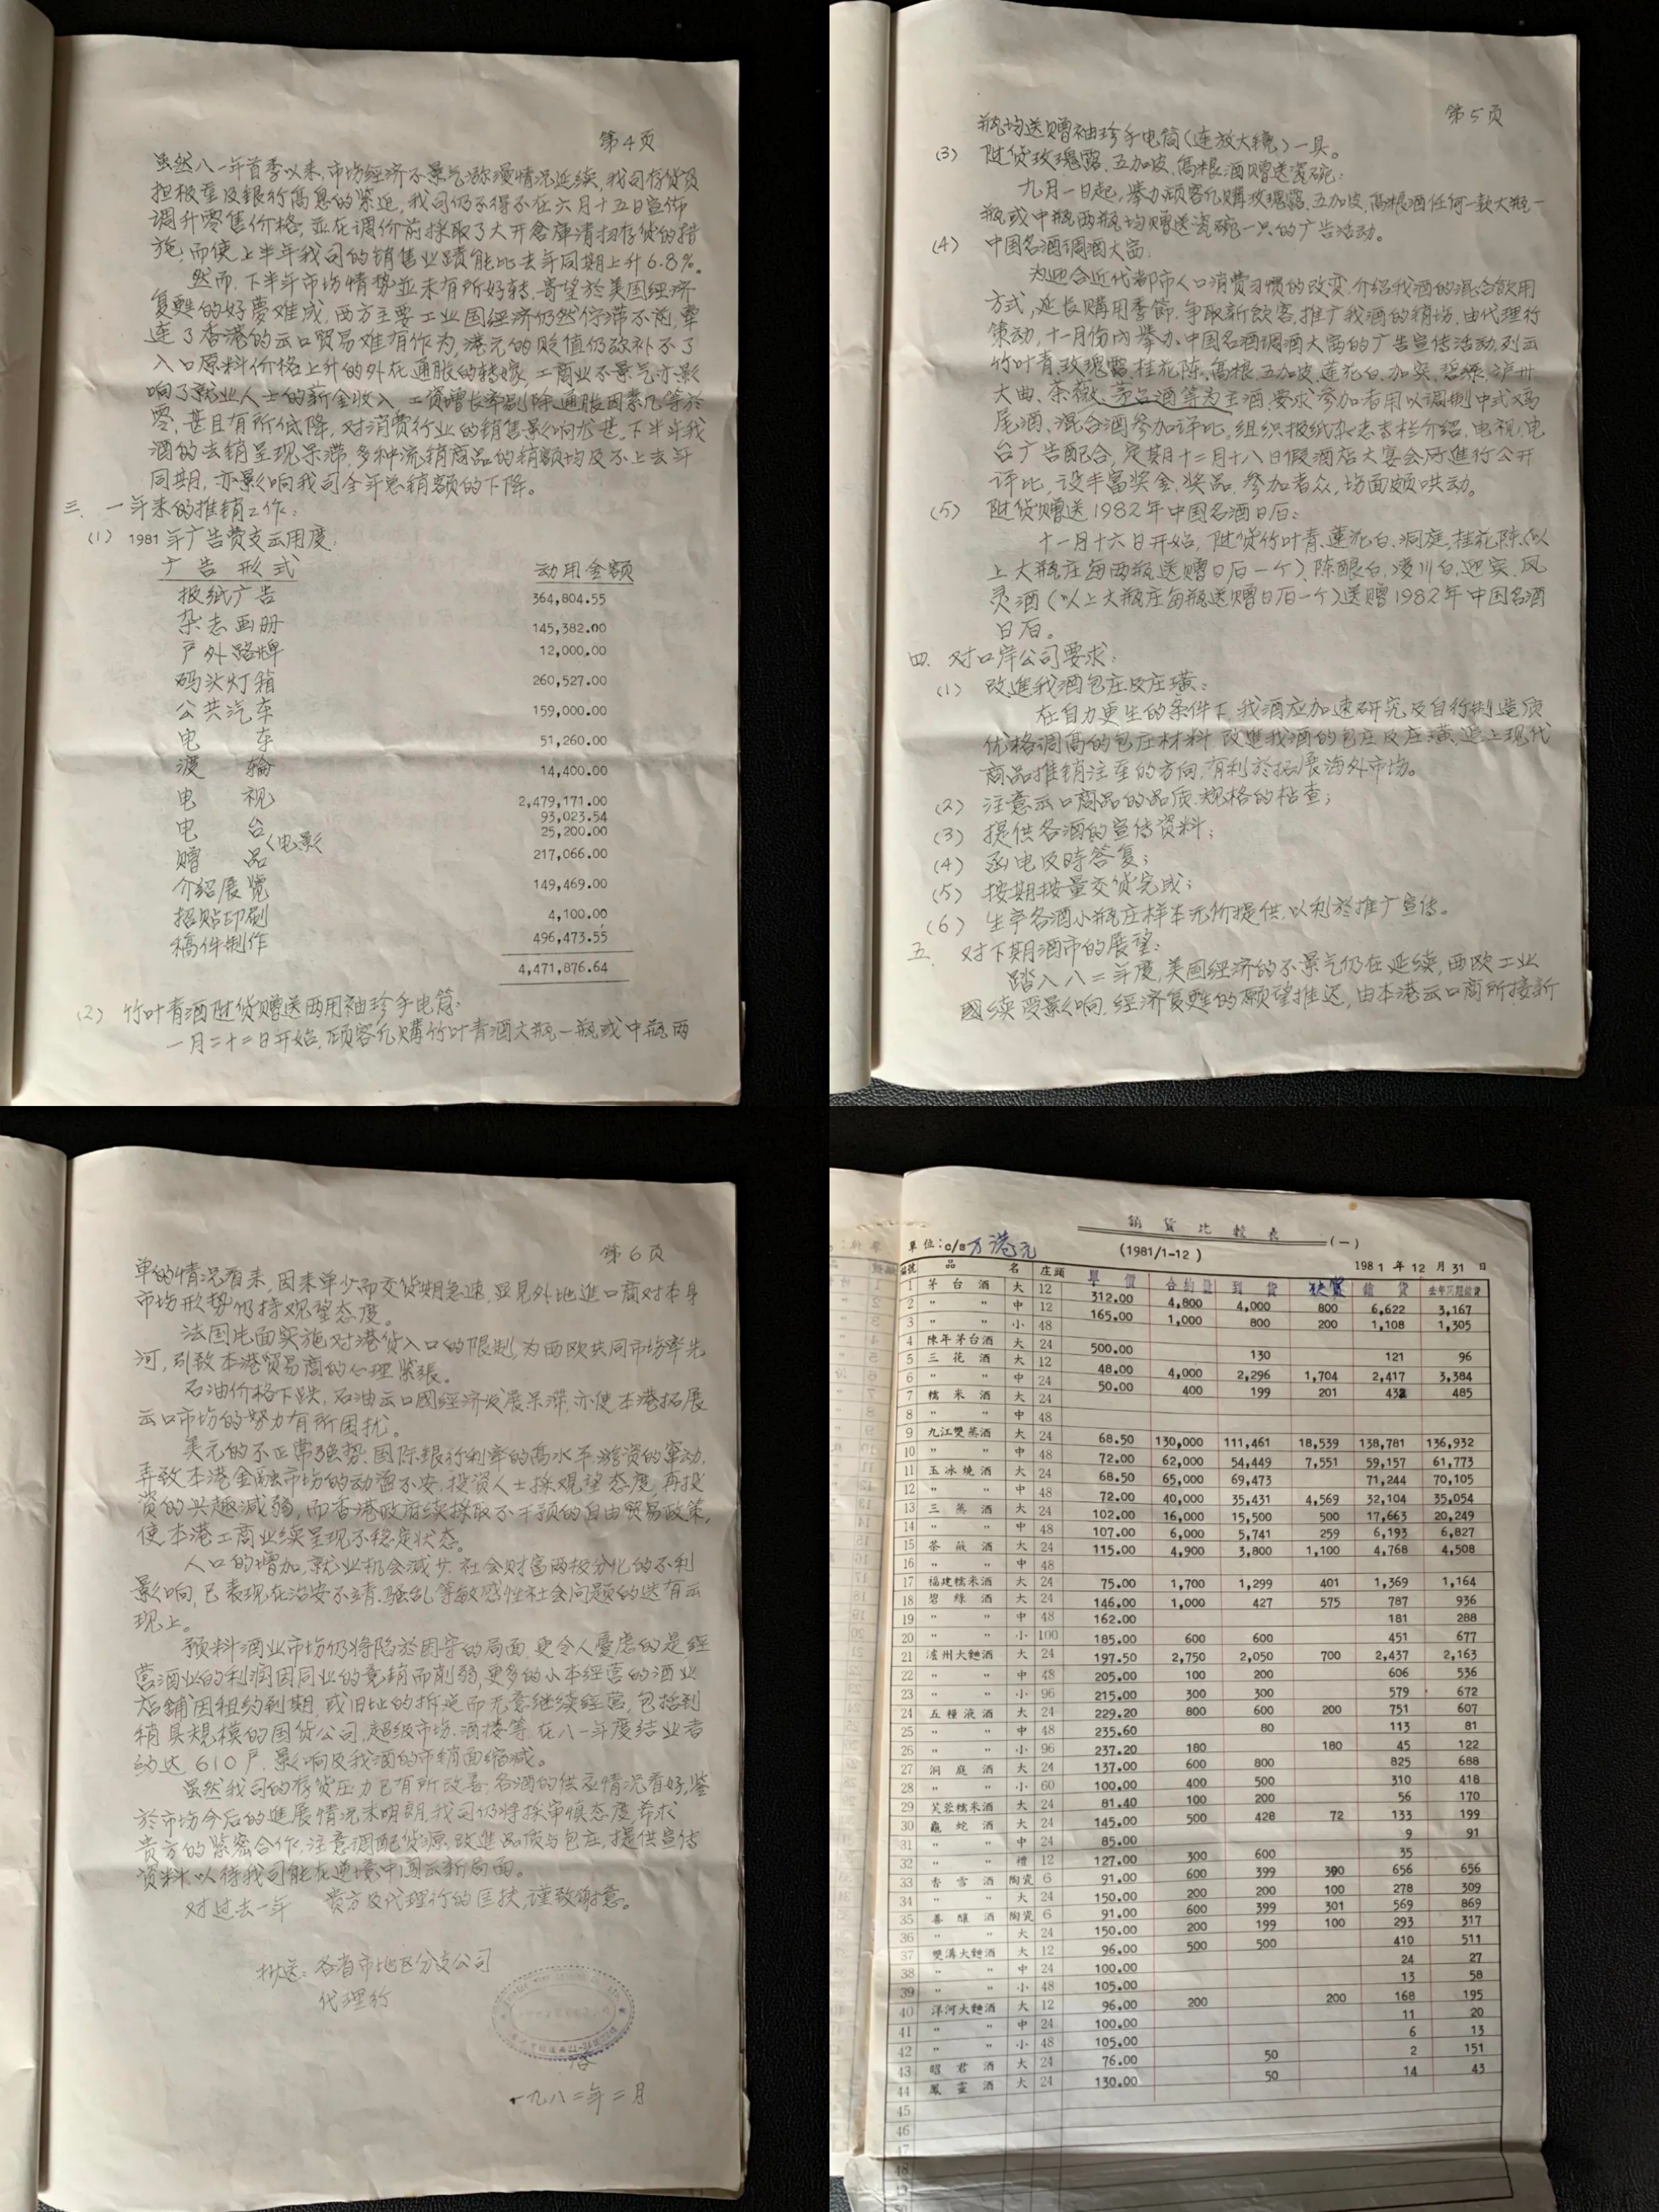 第4页
虽然八一年首季以来,市场经济不景气弥漫情况延续,我司存货负
担极重及银行高息的紧迫,我司仍不得不在六月十五日宣佈
调升零售价格,並在调价前採取了大开仓庫清扫存货的措
施,而使上半年我司的销售业蹟能比去年同期上升6.8%。
然而,下半年市场情势並未有所好转,寄望於美国经济
复甦的好夢难成,西方主要工业国经济仍然停滞不前,牵
连了香港的出口贸易难有作为,港元的贬值仍弥补不了
入口原料价格上升的外在通胀的转嫁,工商业不景气亦影
响了就业人士的薪金收入,工资增长率剔除通胀因素几等於
零,甚且有所低降,对消费行业的销售影响尤甚。下半年我
酒的去销呈现呆滞,多种流销商品的销额均及不上去年
同期,亦影响我司全年总销额的下降。
三. 一年来的推销工作:
(1) 1981年广告费支出用度:
广告形式 动用金额
报纸广告 364,804.55
杂志画册 145,382.00
户外路牌 12,000.00
码头灯箱 260,527.00
公共汽车 159,000.00
电车 51,260.00
渡轮 14,400.00
电视 2,479,171.00
电台 93,023.54
<电影 25,200.00
赠品 217,066.00
介绍展览 149,469.00
招贴印刷 4,100.00
稿件制作 496,473.55
4,471,876.64
(2) 竹叶青酒随货赠送两用袖珍手电筒:
一月二十二日开始,顾客凡購竹叶青酒大瓶一瓶或中瓶两
第5页
瓶均送赠袖珍手电筒(连放大镜)一具。
(3) 随货玫瑰露、五加皮、高粮酒赠送瓷碗:
九月一日起,举办顾客凡購玫瑰露、五加皮、高粮酒任何一款大瓶一
瓶或中瓶两瓶均赠送瓷碗一只的广告活动。
(4) 中国名酒调酒大赛:
为迎合近代都市人口消费习惯的改变,介绍我酒的混合飲用
方式,延长購用季節,争取新飲客,推广我酒的销场,由代理行
策动,十一月份内举办中国名酒调酒大赛的广告宣传活动,列出
竹叶青、玫瑰露、桂花陈、高粮、五加皮、莲花白、加窦、碧绿、泸州
大曲、茶薇、茅台酒等为主酒,要求参加者用以调制中式鸡
尾酒、混合酒参加评比。组织报纸杂志专栏介绍,电视、电
台广告配合,定期十二月十八日假酒店大宴会厅進行公开
评比,设丰富奖金、奖品,参加者众,场面颇哄动。
(5) 随货赠送1982年中国名酒日历:
十一月十六日开始,随货竹叶青、莲花白、洞庭、桂花陈(以
上大瓶庄每两瓶送赠日历一个)、陈酿白、凌川白、迎宾、风
灵酒(以上大瓶庄每瓶送赠日历一个)送赠1982年中国名酒
日历。
四. 对口岸公司要求:
(1) 改進我酒包庄及庄璜:
在自力更生的条件下,我酒应加速研究及自行制造质
优格调高的包庄材料,改進我酒的包庄及庄璜,追上现代
商品推销注重的方向,有利於拓展海外市场。
(2) 注意出口商品的品质、规格的检查;
(3) 提供各酒的宣传资料;
(4) 函电及時答复;
(5) 按期按量交货完成;
(6) 生产各酒小瓶庄样本无价提供,以利於推广宣传。
五. 对下期酒市的展望:
踏入八二年度,美国经济的不景气仍在延续,西欧工业
國续受影响,经济复甦的願望推迟,由本港出口商所接新
第6页
单的情况看来,因来单少而交货期急速,显见外地進口商对本身
市场形势仍持观望态度。
法国片面实施对港货入口的限制,为西欧共同市场率先
河,引致本港贸易商的心理紧張。
石油价格下跌,石油出口國经济发展呆滞,亦使本港拓展
出口市场的努力有所困扰。
美元的不正常强势,国际银行利率的高水平,游资的窜动,
弄致本港金融市场的动盪不安,投资人士採观望态度,再投
资的兴趣减弱,而香港政府续採取不干预的自由贸易政策,
使本港工商业续呈现不稳定状态。
人口的增加,就业机会减少,社会财富两极分化的不利
影响,已表现在治安不靖、骚乱等敏感性社会问题的迭有出
现上。
预料酒业市场仍将陷於困守的局面,更令人憂虑的是经
营酒业的利润因同业的竞销而削弱,更多的小本经营的酒业
店铺因租约到期,或旧址的拆迁而无意继续经营,包括到
稍具规模的国货公司、超级市场、酒楼等,在八一年度结业者
约达610户,影响及我酒的市销面缩减。
虽然我司的存货压力已有所改善,名酒的供应情况看好,鉴
於市场今后的進展情况未明朗,我司仍将採审慎态度,希求
贵方的紧密合作,注意调配货源,改進品质与包庄,提供宣传
资料,以待我司能在逆境中闯出新局面。
对过去一年 贵方及代理行的匡扶,谨致谢意。
抄送:各省市地区分支公司
代理行
一九八二年二月
銷貨比較表(一)
單位:c/s万港元 (1981/1-12) 1981年12月31日
編號 品名 庄頭 單價 合約量 到貨 銷貨 去年同期銷貨
1 茅台酒 大 12 312.00 4,800 4,000 800 6,622 3,167
2 〃 〃 中 12 165.00 1,000 800 200 1,108 1,305
3 〃 〃 小 48
4 陳年茅台酒 大 24 500.00 130 121 96
5 三花酒 大 12 48.00 4,000 2,296 1,704 2,417 3,384
6 〃 〃 中 24 50.00 400 199 201 432 485
7 糯米酒 大 24
8 〃 〃 中 48
9 九江雙蒸酒 大 24 68.50 130,000 111,461 18,539 138,781 136,932
10 〃 〃 中 48 72.00 62,000 54,449 7,551 59,157 61,773
11 玉冰燒酒 大 24 68.50 65,000 69,473 71,244 70,105
12 〃 〃 中 48 72.00 40,000 35,431 4,569 32,104 35,054
13 三蒸酒 大 24 102.00 16,000 15,500 500 17,663 20,249
14 〃 〃 中 48 107.00 6,000 5,741 259 6,193 6,827
15 茶薇酒 大 24 115.00 4,900 3,800 1,100 4,768 4,508
16 〃 〃 中 48
17 福建糯米酒 大 24 75.00 1,700 1,299 401 1,369 1,164
18 碧綠酒 大 24 146.00 1,000 427 575 787 936
19 〃 〃 中 48 162.00 181 288
20 〃 〃 小 100 185.00 600 600 451 677
21 瀘州大麯酒 大 24 197.50 2,750 2,050 700 2,437 2,163
22 〃 〃 中 48 205.00 100 200 606 536
23 〃 〃 小 96 215.00 300 300 579 672
24 五糧液酒 大 24 229.20 800 600 200 751 607
25 〃 〃 中 48 235.60 80 113 81
26 〃 〃 小 96 237.20 180 180 45 122
27 洞庭酒 大 24 137.00 600 800 825 688
28 〃 〃 小 60 100.00 400 500 310 418
29 芙蓉糯米酒 大 24 81.40 100 200 56 170
30 龜蛇酒 大 24 145.00 500 428 72 133 199
31 〃 〃 中 24 85.00 9 91
32 〃 〃 禮 12 127.00 300 600 35
33 香雪酒 陶瓷 6 91.00 600 399 300 656 656
34 〃 〃 大 24 150.00 200 200 100 278 309
35 善釀酒 陶瓷 6 91.00 600 399 301 569 869
36 〃 〃 大 24 150.00 200 199 100 293 317
37 雙溝大麯酒 大 12 96.00 500 500 410 511
38 〃 〃 中 24 100.00 24 27
39 〃 〃 小 48 105.00 13 58
40 洋河大麯酒 大 12 96.00 200 200 168 195
41 〃 〃 中 24 100.00 11 20
42 〃 〃 小 48 105.00 6 13
43 昭君酒 大 24 76.00 50 2 151
44 鳳靈酒 大 24 130.00 50 14 43
45
46
47
48
49